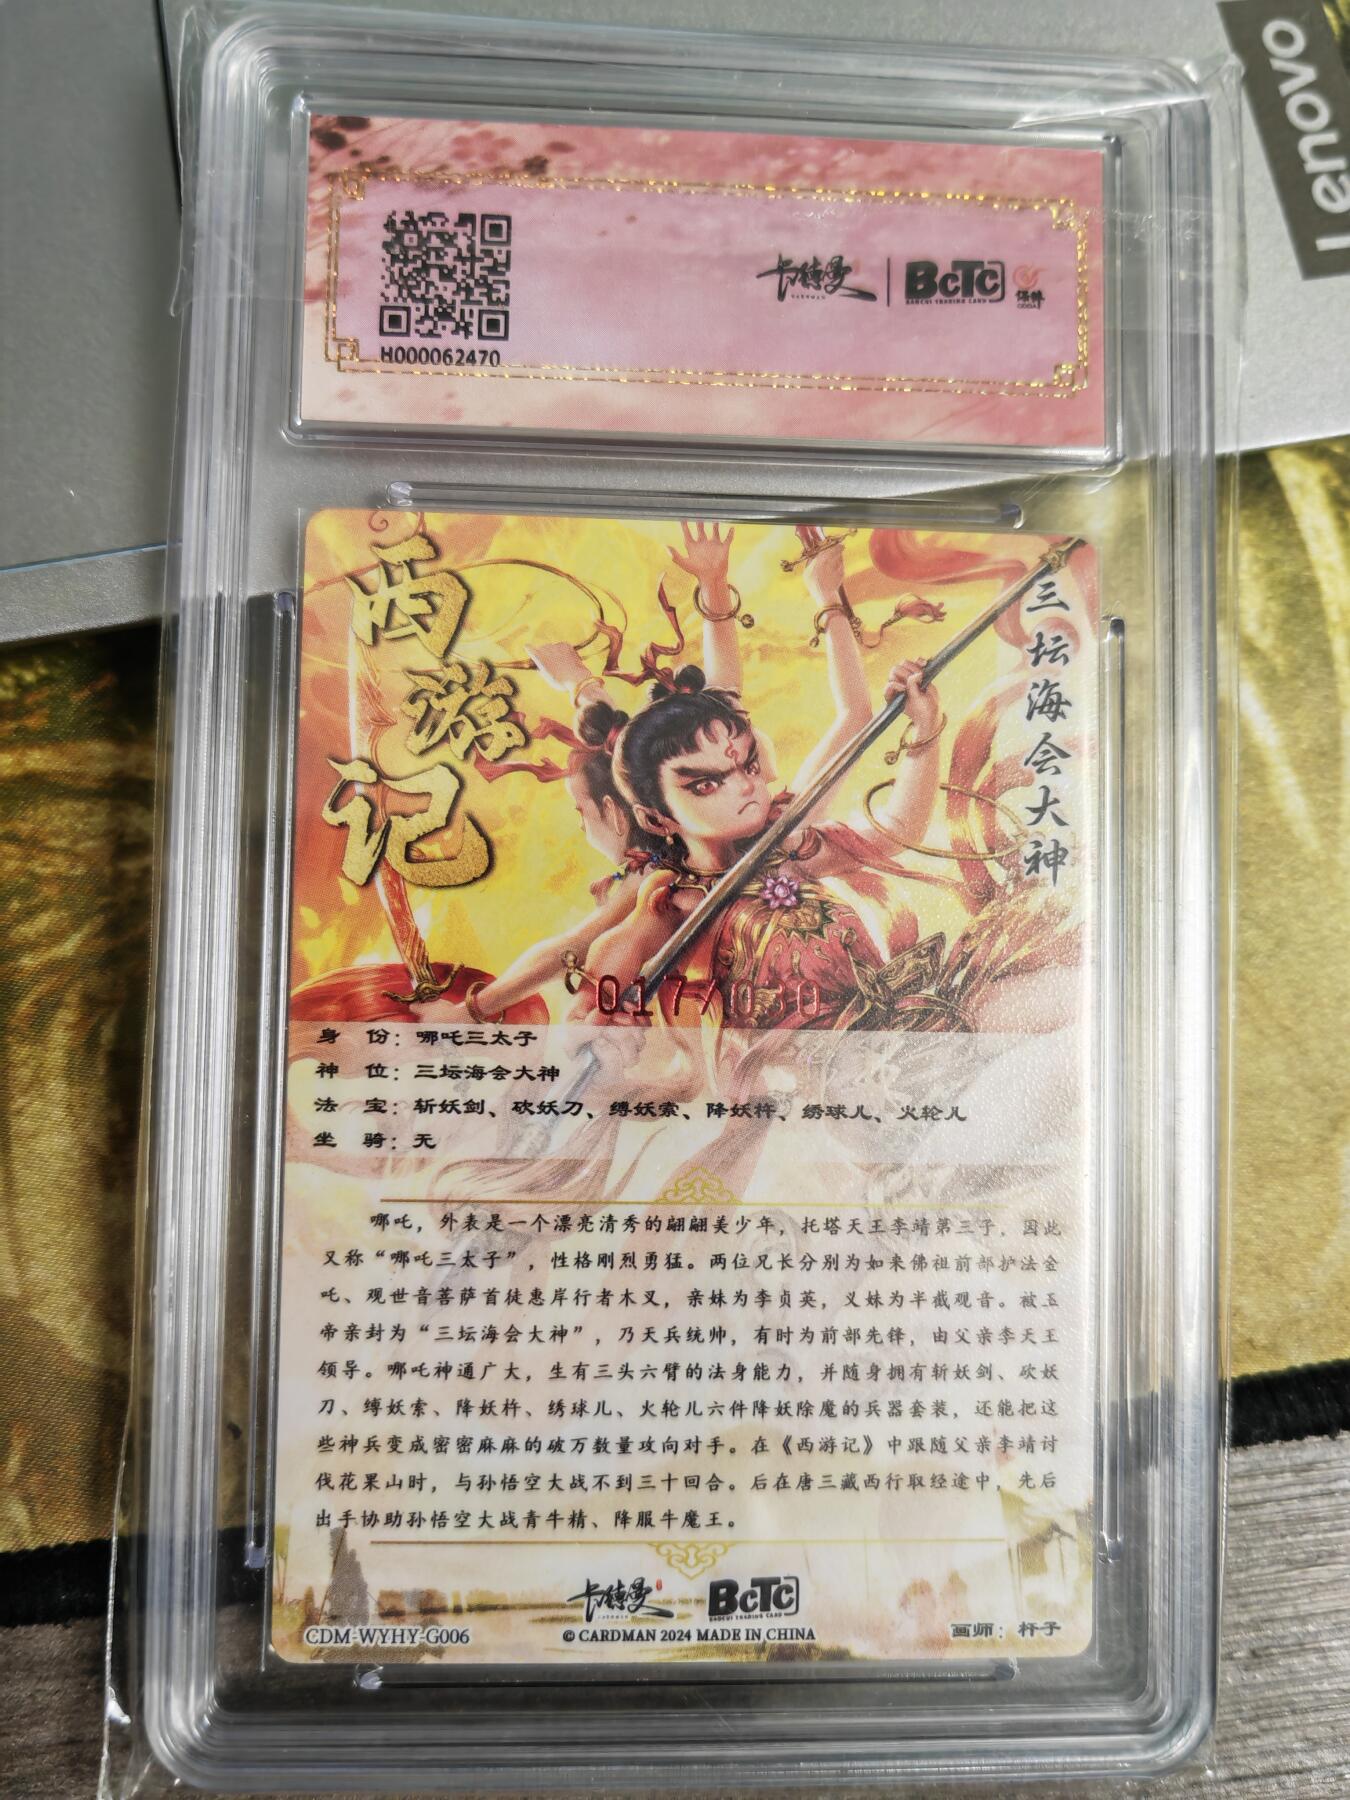 lenovo
卡德曼
CARDMAN
BCTC
BAOCUI TRADING CARD
H000062470
西游记
三坛海会大神
身 份：哪吒三太子
神 位：三坛海会大神
法 宝：斩妖剑、砍妖刀、缚妖索、降妖杵、绣球儿、火轮儿
坐 骑：无
哪吒，外表是一个漂亮清秀的翩翩美少年，托塔天王李靖第三子，因此
又称“哪吒三太子”，性格刚烈勇猛。两位兄长分别为如来佛祖前部护法金
吒、观世音菩萨首徒惠岸行者木叉，亲妹为李贞英，义妹为半截观音。被玉
帝亲封为“三坛海会大神”，乃天兵统帅，有时为前部先锋，由父亲李天王
领导。哪吒神通广大，生有三头六臂的法身能力，并随身拥有斩妖剑、砍妖
刀、缚妖索、降妖杵、绣球儿、火轮儿六件降妖除魔的兵器套装，还能把这
些神兵变成密密麻麻的破万数量攻向对手。在《西游记》中跟随父亲李靖讨
伐花果山时，与孙悟空大战不到三十回合。后在唐三藏西行取经途中，先后
出手协助孙悟空大战青牛精、降服牛魔王。
卡德曼
BCTC
BAOCUI TRADING CARD
CDM-WYHY-G006
© CARDMAN 2024 MADE IN CHINA
画师：杆子